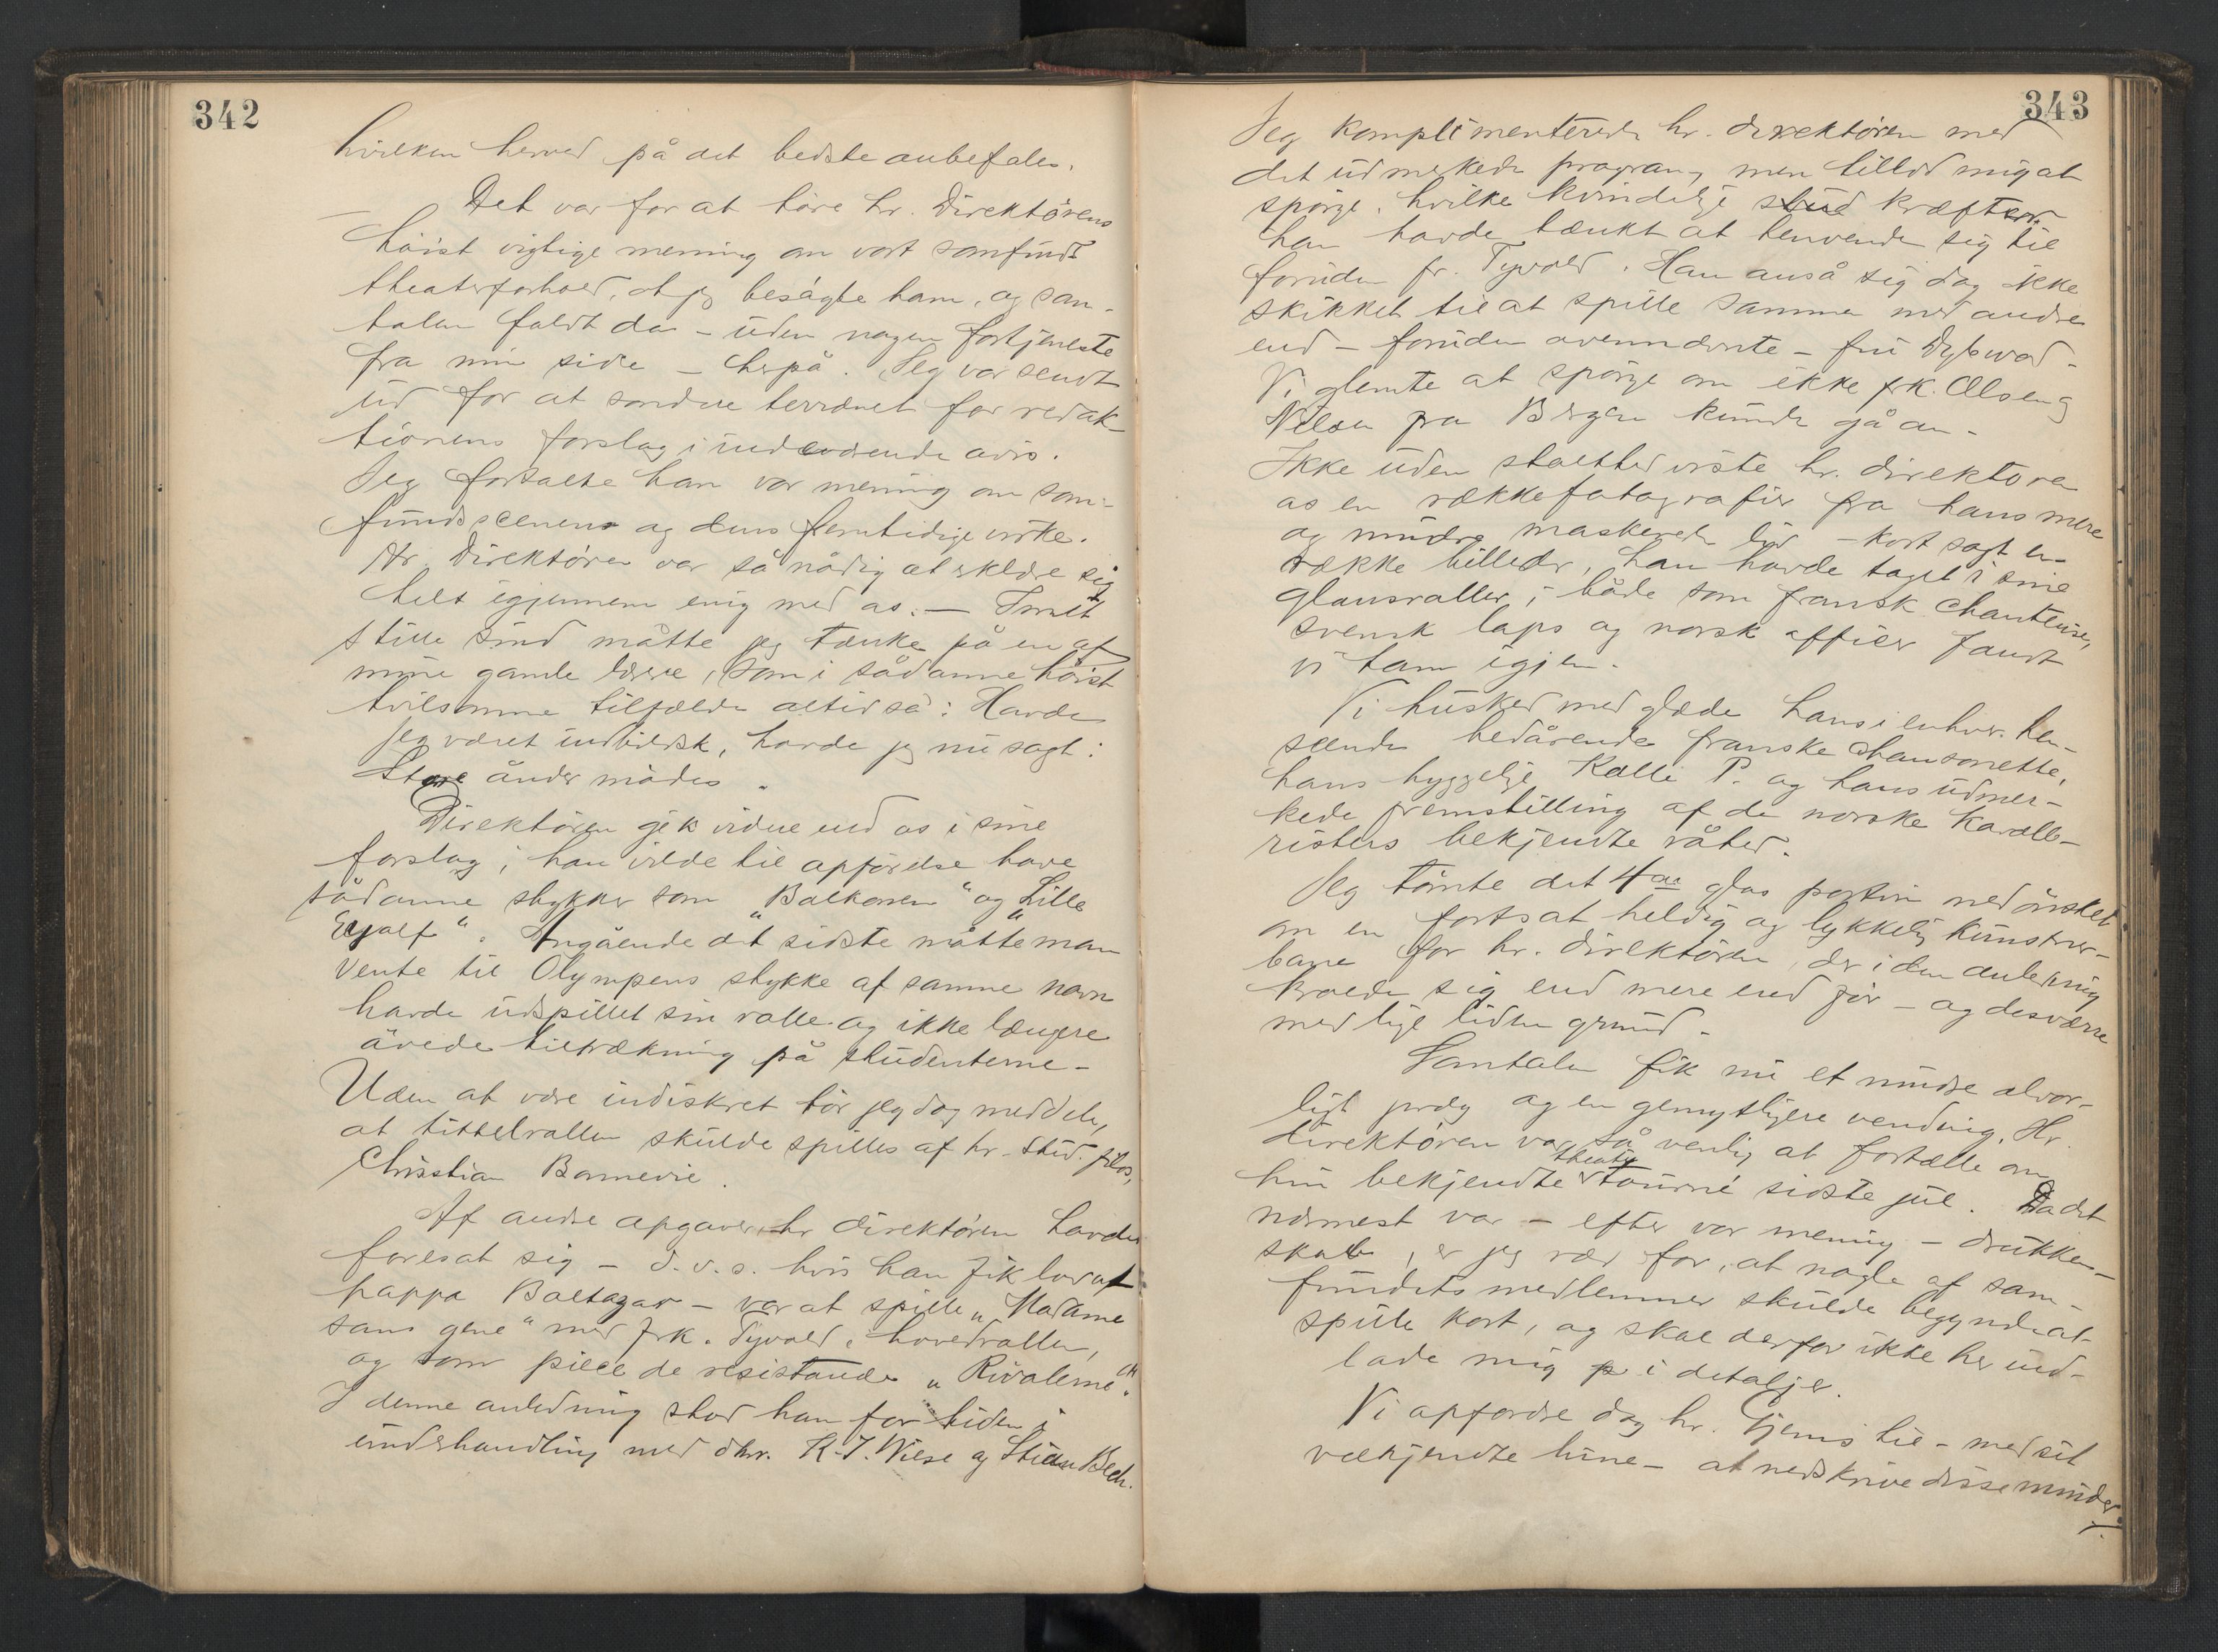 342
hvilken herved på det bedste anbefales.
— Det var for at høre hr. Direktørens
høist vigtige mening om vort samfunds
theaterforhold, at jeg besøgte ham, og sam-
talen faldt da – uden nogen fortjeneste
fra min side – herpå. Jeg var sendt
ud for at sondere terrænet for redak
tionens forslag i indeværende avis.
Jeg fortalte ham vor mening om sam-
fundsscenen og dens fremtidige virke.
Hr. Direktøren var så nådig at erklære sig
helt igjennem enig med os. – I mit
stille sind måtte jeg tænke på en af
mine gamle lærere, som i sådanne høist
tvilsomme tilfælde altid sa: Havde
jeg været indbildsk, havde jeg nu sagt:
Store ånder mødes.
Direktøren gik videre end os i sine
forslag; han vilde til opførelse have
sådanne stykker som "Balkonen" og "Lille
Eyolf". Angående det sidste måtte man
vente til Olympens stykke af samme navn
havde udspillet sin rolle og ikke længere
øvede tiltrækning på studenterne –
Uden at være indiskret tør jeg dog meddele,
at tittelrollen skulde spilles af hr. stud. filos,
Christian Bonnevie.
Af andre opgaver hr direktøren havde
foresat sig – d. v. s. hvis han fik lov af
pappa Baltazar – var at spille "Madame
sans gene" med frk. Tyvold i hovedrollen,
og som piece de resistance "Rivalerne".
I denne anledning stod han for tiden i
underhandling med dhrr. K. J. Wiese og Stian Bech.
343
Jeg komplimenterede hr. direktøren med
det udmerkede program, men tillod mig at
spørge, hvilke kvindelige stud kræfter
han havde tænkt at henvende sig til
foruden fr. Tyvold. Han anså sig dog ikke
skikket til at spille sammen med andre
end – foruden ovennævnte – fru Dybwad.
Vi glemte at spørge om ikke frk. Olsen og
Nilsen fra Bergen kunde gå an –
Ikke uden stolthed viste hr. direktøren
os en række fotografier fra hans mere
og mindre maskerede liv – kort sagt en
række billeder, han havde taget i sine
glansroller; både som fransk chanteuse,
svensk laps og norsk officer fandt
vi ham igjen.
Vi husker med glæde hans i enhver hen-
seende bedårende franske chansonette,
hans hyggelige Kalle P. og hans udmer-
kede fremstilling af de norske kavalle-
risters bekjendte råhed.
Jeg tømte det 4de glas portvin med ønsket
om en fortsat heldig og lykkelig kunstner-
bane for hr. direktøren, der i den anledning
kroede sig end mere end før – og desværre
med lige liden grund –
Samtalen fik nu et mindre alvor-
ligt præg og en gemytligere vending. Hr.
direktøren var så venlig at fortælle om
theater
hin bekjendte tourné sidste jul. Da det
nærmest var – efter vor mening – drukken-
skab, er jeg ræd for, at nogle af sam-
fundets medlemmer skulde begynde at
spille kort, og skal derfor ikke her ind-
lade mig på i detaljer.
Vi opfordre dog hr. Gjems til – med sit
velkjendte lune – at nedskrive disse minder.